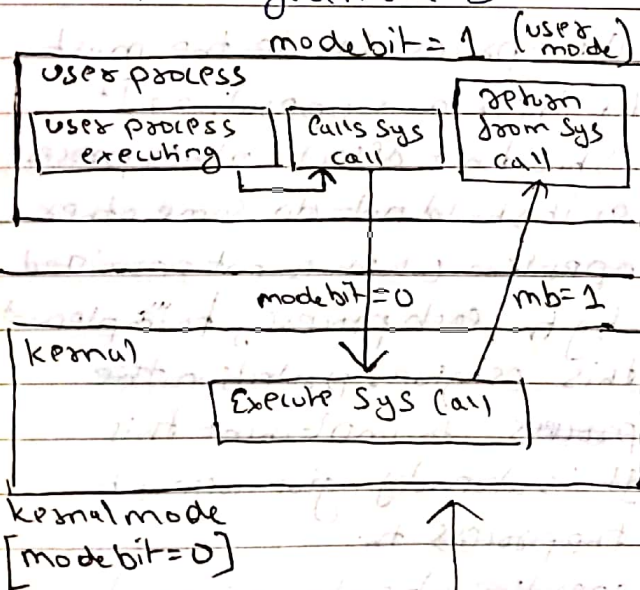 modebit = 1 (user mode)
user process
user process
executing
Calls Sys
call
return
from Sys
call
modebit = 0
mb = 1
kernal
Execute Sys Call
kernal mode
[modebit = 0]